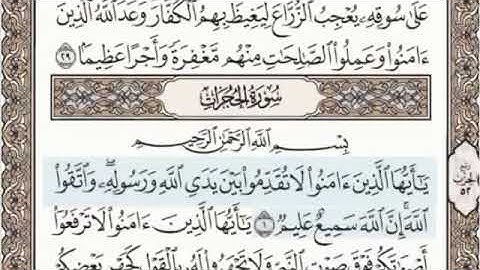 عَلَىٰ سُوقِهِۦ يُعْجِبُ ٱلزُّرَّاعَ لِيَغِيظَ بِهِمُ ٱلْكُفَّارَ وَعَدَ ٱللَّهُ ٱلَّذِينَ
ءَامَنُوا۟ وَعَمِلُوا۟ ٱلصَّٰلِحَٰتِ مِنْهُم مَّغْفِرَةً وَأَجْرًا عَظِيمًۢا ٢٩
سُورَةُ الحُجُرَاتِ
بِسْمِ ٱللَّهِ ٱلرَّحْمَٰنِ ٱلرَّحِيمِ
يَٰٓأَيُّهَا ٱلَّذِينَ ءَامَنُوا۟ لَا تُقَدِّمُوا۟ بَيْنَ يَدَىِ ٱللَّهِ وَرَسُولِهِۦ وَٱتَّقُوا۟
ٱللَّهَ إِنَّ ٱللَّهَ سَمِيعٌ عَلِيمٌ ١ يَٰٓأَيُّهَا ٱلَّذِينَ ءَامَنُوا۟ لَا تَرْفَعُوٓا۟
أَصْوَٰتَكُمْ فَوْقَ صَوْتِ ٱلنَّبِىِّ وَلَا تَجْهَرُوا۟ لَهُۥ بِٱلْقَوْلِ كَجَهْرِ بَعْضِكُمْ
الحزب
٥٢